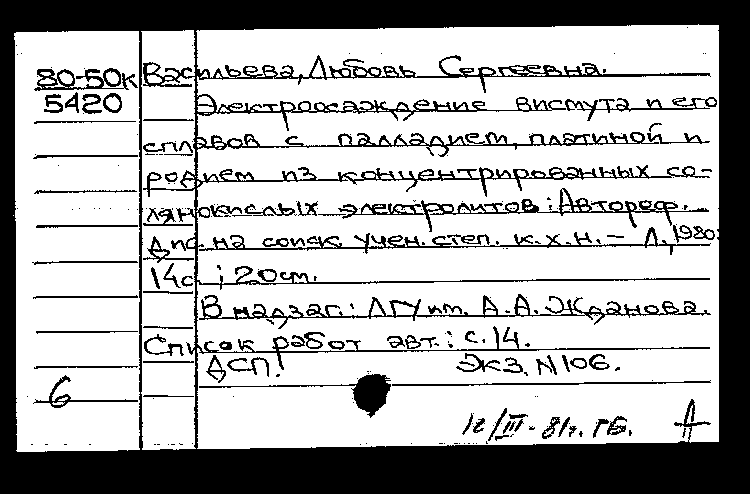 80-50к Васильева, Любовь Сергеевна.
5420 Электроосаждение висмута и его
сплавов с палладием, платиной и
родием из концентрированных со-
лянокислых электролитов: Автореф.
дис. на соиск. учен. степ. к.х.н. – Л., 1980.
14с.; 20см.
В надзаг.: ЛГУ им. А.А. Жданова.
Список работ авт.: с. 14.
ДСП! Экз. N 106.
6
12/III - 81г. ГБ. А